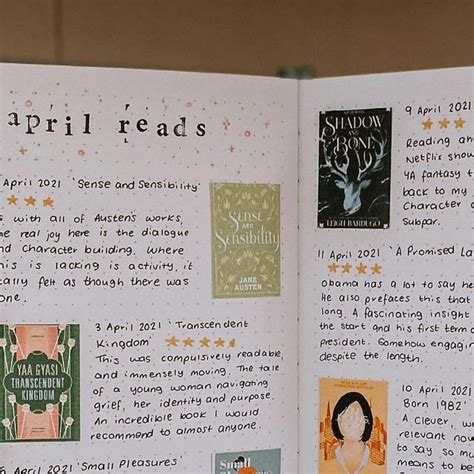 april reads
April 2021 'Sense and Sensibility'
s with all of Austen's works,
me real joy here is the dialogue
and character building. Where
his is lacking is activity, it
cally felt as though there was
one.
SENSE
AND
SENSIBILITY
JANE
AUSTEN
3 April 2021 'Transcendent
Kingdom'
This was compulsively readable,
and immensely moving. The tale
of a young woman navigating
grief, her identity and purpose.
An incredible book I would
recommend to almost anyone.
YAA GYASI
TRANSCENDENT
KINGDOM
April 2021 'Small Pleasures'
Small
9 April 2021
Reading ah
Netflix show
YA fantasy t
back to my
Character d
Subpar.
SHADOW
AND
BONE
LEIGH BARDUGO
11 April 2021 'A Promised La
Obama has a lot to say he
He also prefaces this that
long. A fascinating insight
the start and his first term
president. Somehow engagin
despite the length.
10 April 2021
Born 1982'
A clever, w
relevant nov
to say so m
means to be